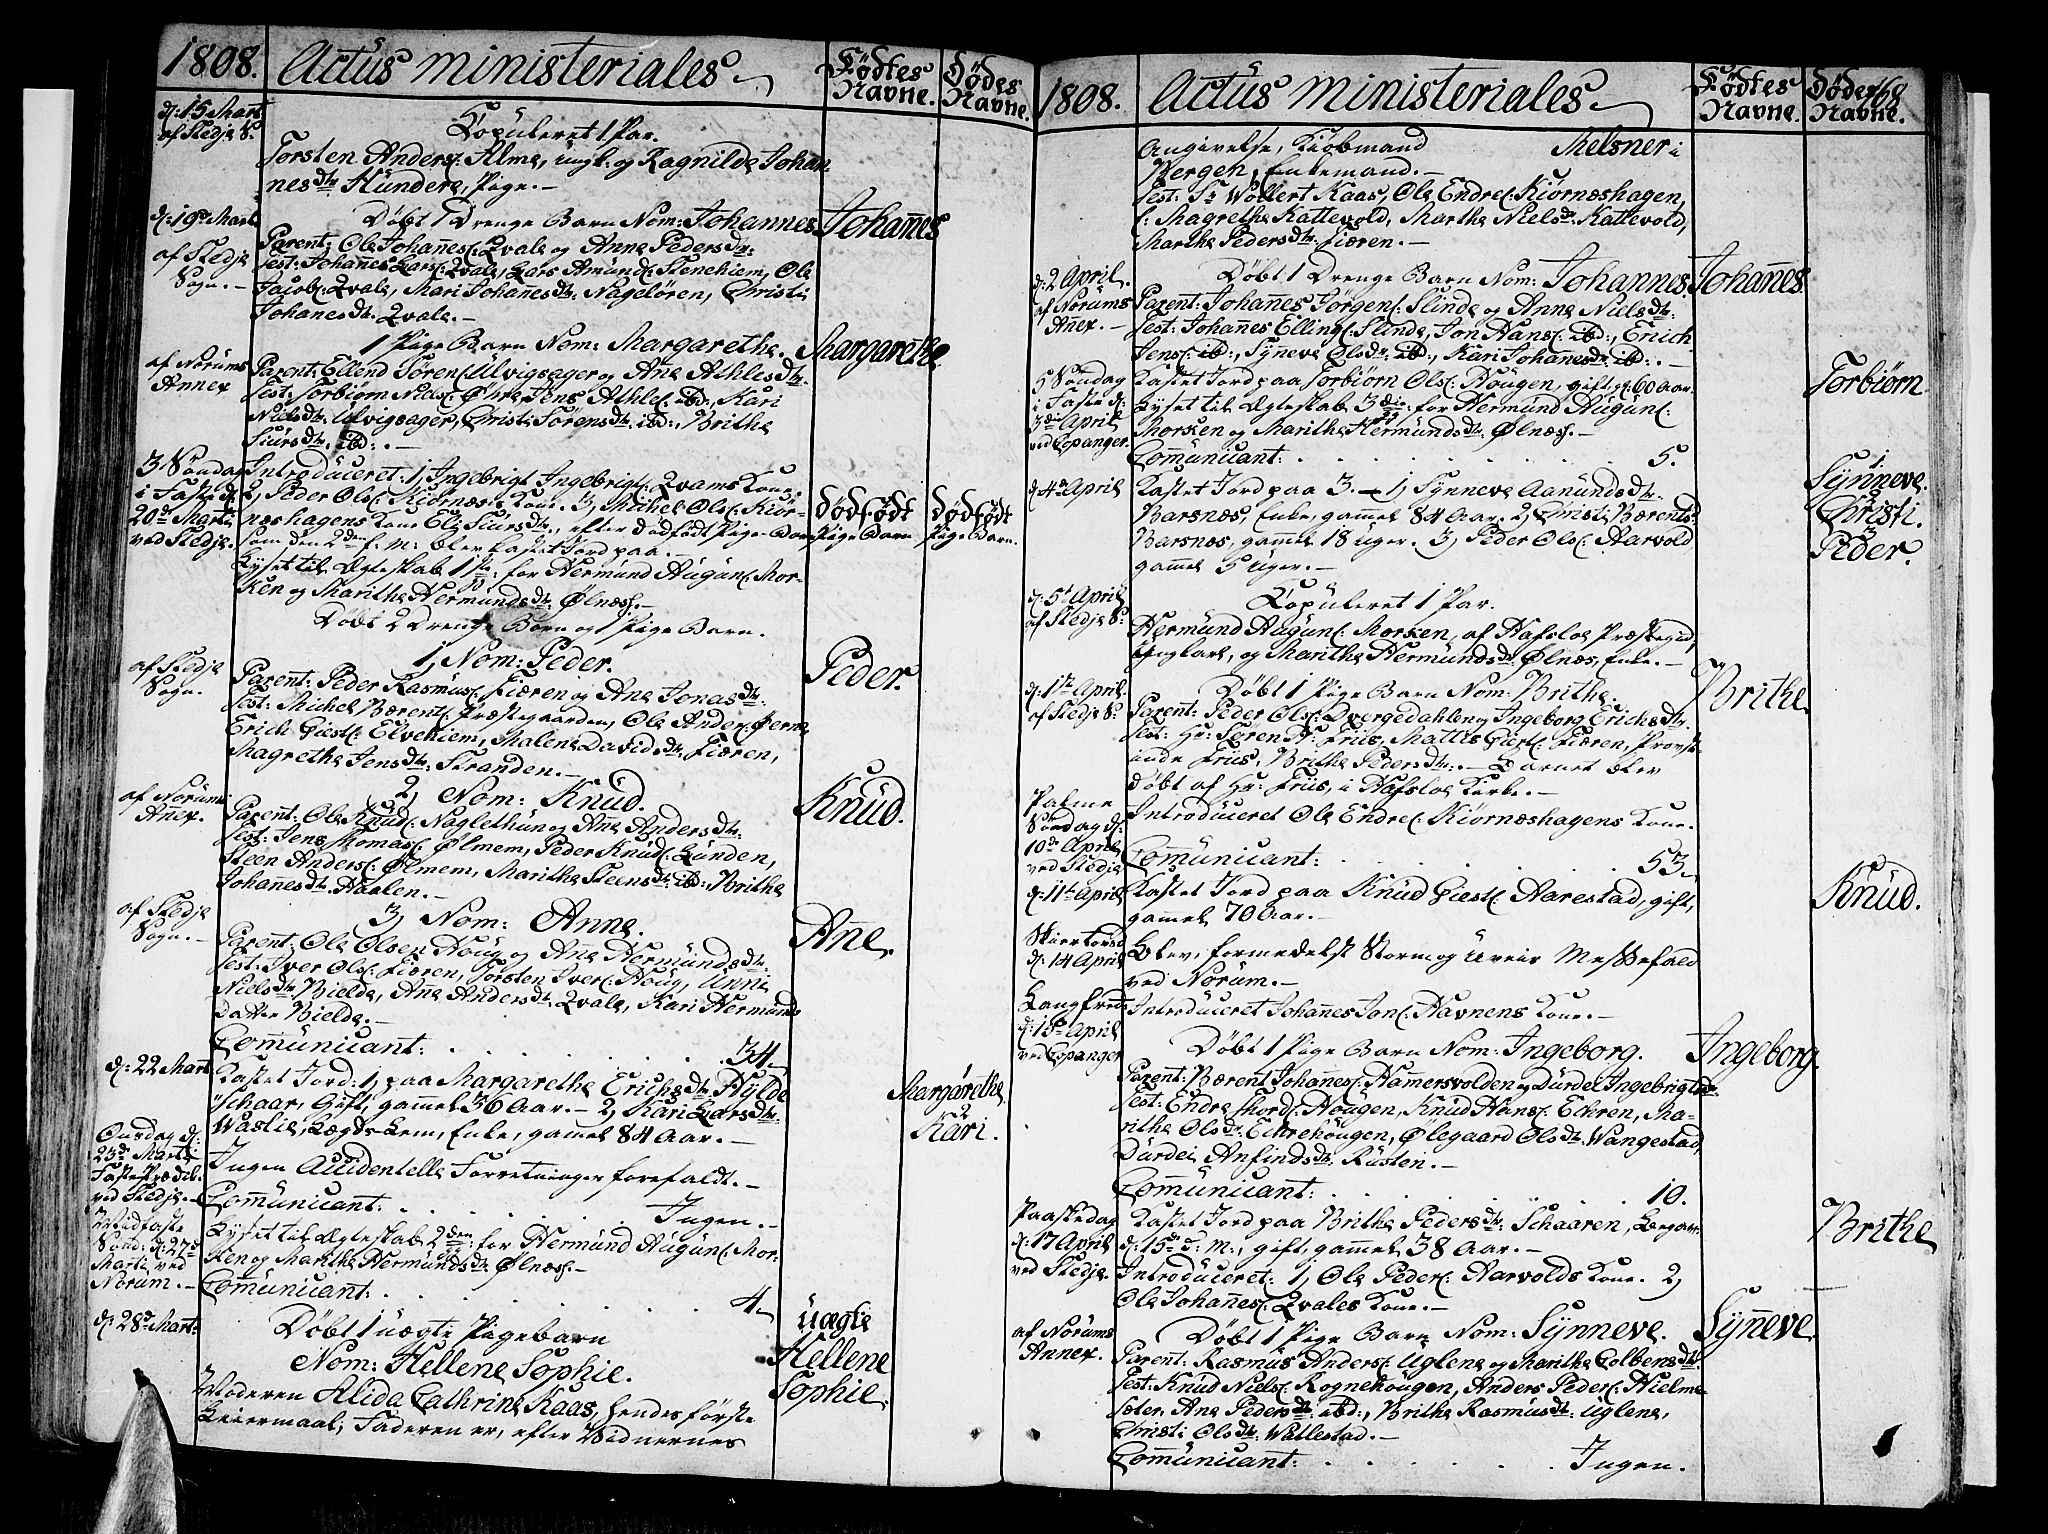 1808. Actus ministeriales. Fødtes Navne. Dødes Navne.
d: 15 Mart: af Stedje S:
Copuleret 1 Par.
Torsten Anders: Alme, ungk: og Ragnilda Johan-
nesdtr Hundere, Pige.
d: 19de Mart: af Stedje Sogn.
Døbt 1 Drenge Barn Nom: Johannes Johañes
Parent: Ole Johañes: Qvale og Anne Pedersdtr:
Test: Johañes Lars: Qvale, Lars Amund: Stenehiem, Ole
Jacob: Qvale, Mari Johañesdtr: Nagelören, Christi
Johanesdtr: Qvale.
af Norums Annex
1 Pige Barn Nom: Margarethe. Margarethe
Parent: Ellend Sören: Ulvigsager og Ane Athlesdtr.
Test: Torbiørn Niels: Øhre, Jens Athle: ibd:, Kari
Nielsdtr: Ulvigsager, Christi Sörensdtr: ibd:, Brithe
Siursdtr: ibd:.
3 Søndag i Faste d: 20de Martii ved Stedje.
Introduceret: 1, Ingebrigt Ingebrigt: Qvams Kone,
2, Peder Ols: Kiörnæs: Kone. 3, Michel Ols: Kiör-
næshagens Kone Eli Siursdtr:, efter dødfödt Pige-Barn
som den 2den f: M: blev kastet Jord paa.
dödfödt Pige Barn
dödfödt Pige Barn.
Lyset til Ægteskab 1ste: for Hermund Augun: Mor-
ken og Marithe Hermundsdtr: Ølnæs.
Døbt 2 Drenge Børn og 1 Pige Barn.
af Stedje Sogn.
1, Nom: Peder. Peder.
Parent: Peder Rasmus: Fiæren og Ane Jonasdtr:
Test: Michel Bærent: Præstegaarden, Ole Ander:
Erich Giest: Elvehiem, Malene Davidsdtr: Fiæren,
Magrethe Jensdtr: Stranden.
af Norums Anex.
2, Nom: Knud. Knud.
Parent: Ole Knud: Naglethun og Añe Andersdtr:
Test: Jens Thomas: Ølmem, Peder Knud: Lunden,
Steen Anders: Ølmem, Marithe Steensdtr: ibd: Brithe
Johañesdtr: Haalen.
af Stedje Sogn.
3, Nom: Anne. Ane.
Parent: Ole Olsen Houg og Añe Hermundsdtr:
Test: Iver Ols: Fiæren, Torsten Iver: Houg, Unni
Nielsdtr: Bielde, Añe Andersdtr: Qvale, Kari Hermunds
datter Bielde.
Com̃unicant: 34
d: 22 Mart
Kastet Jord: 1, paa Margarethe Erichsdtr: Hylde
schaar, Gift, gammel 36 Aar. 2, Kari Larsdtr:
Wastie, Lægds-Lem, Enke, gamel 84 Aar.
Margarethe 2 Kari.
Onsdag d: 23de Martii Faste Prædik: ved Stedje.
Ingen Accidentelle Forretninger forefaldt.
Com̃unicant: Ingen.
Midfaste Sönd: d: 27de Martii, ved Norum.
Lyset til Ægteskab 2den: for Hermund Augun: Mor-
ken og Marithe Hermundsdtr: Ølnæs.
Com̃unicant: 4
d: 28de Mart:
Døbt 1 uægte Pigebarn
Nom: Hellene Sophie.
uægte Hellene Sophie.
Moderen Alida Cathrine Kaas, hendes første
Leiermaal; Faderen er, efter Vidnernes
1808. Actus ministeriales. Fødtes Navne. Dødes Navne. 168
Angivelse, Kiøbmand Meisner i
Bergen, Enkemand.
Test: Sr Wollert Kaas, Ole Endre: Kiörnæshagen,
Magrethe Kattevold, Marthe Nielsdr: Kattevold,
Marthe Pedersdtr: Fiæren.
d: 2 April. af Norums Anex.
Døbt 1 Drenge Barn Nom: Johannes. Johañes
Parent: Johañes Jörgen: Slinde og Anne Nielsdtr:
Test: Johañes Elling: Slinde, Jon Hans: ibd:, Erich
Jens: ibd:, Syñeve Olsdtr: ibd:, Kari Johañesdtr: ibd:.
5 Söndag i Faste d: 3die April ved Copanger.
Kastet Jord paa Torbiørn Ols: Hougen, gift, g: 60 aar.
Torbiørn
Lyset til Ægteskab 3die: for Hermund Augun:
Morken og Marithe Hermundsdtr: Ølnæs.
Com̃unicant: 5.
d: 4de April
Kastet Jord paa 3. 1, Synneve Aamundsdtr:
Barsnæs, Enke, gammel 84 Aar. 2, Christi Bærents:
Barsnæs, gammel 18 uger. 3, Peder Ols: Aarvold
gammel 5 uger.
1 Synneve. Christi. Peder.
d: 5te April af Stedje S:
Copuleret 1 Par.
Hermund Augun: Morken, af Hafsloe Præstegield,
Ungkarl, og Marithe Hermundsdtr: Ølnæs, Enke.
d: 7de April. af Stedje S:
Døbt 1 Pige Barn Nom: Brithe. Brithe.
Parent: Peder Ols: Dvergedahlen og Ingeborg Erichsdtr:
Test: Hr: Sören Friis, Mattis Giest: Fiæren, Provst-
inde Friis, Brithe Pedersdtr:. Barnet blev
døbt af Hr: Friis, i Hafsloe Kirke.
Palme Søndag d: 10de April ved Stedje
Introduceret Ole Endre: Kiörnæshagens Kone.
Com̃unicant: 53
d: 11te April
Kastet Jord paa Knud Giest: Aarestad, gift,
gammel 70 Aar.
Knud.
Skiertorsd: d: 14 April
Blev, formedelst Storm og Uveir Messefald
ved Norum.
Langfred: d: 15de April ved Copanger
Introduceret Johañes Jon: Havnens Kone.
Døbt 1 Pige Barn Nom: Ingeborg. Ingeborg.
Parent: Bærent Johañes: Hamersvolden og Durdei Ingebrigtsdtr:
Test: Endre Thord: Hougen, Knud Hans: Eckren, Ma-
rithe Olsdr: Eckrehougen, Ølegaard Olsdtr: Wangestad,
Durdei Anfindsdtr: Rusten.
Com̃unicant: 10.
Paaskedag d: 17 April ved Stedje.
Kastet Jord paa Brithe Pedersdtr: Schaaren,
d: 15de d: M:, gift, gammel 38 Aar.
Brithe
Introduceret: 1, Ole Peder: Aarvolds Kone. 2,
Ole Johañes: Qvales Kone.
af Norums Annex.
Døbt 1 Pige Barn Nom: Synneve. Syñeve.
Parent: Rasmus Anders: Uglene og Marithe Colbensdtr:
Test: Knud Niels: Rognehougen, Anders Peder: Hielme-
sæter, Ane Pedersdtr: ibd:, Brithe Rasmusdtr: Uglene,
Christi Olsdtr: Wallestad.
Com̃unicant: Ingen.